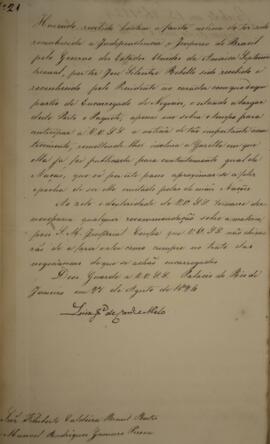 Nº 21
Havendo recebido hontem a fausta noticia de ter sido
reconhecida a Independencia, e Imperio do Brasil
pelo Governo dos Estados Unidos da America Septen-
trional, por ter José Silvestre Rebello sido recebido e
reconhecido pelo Presidente no caracter com que daqui
partio de Encarregado de Negocios, e estando a largar
deste Porto o Paquete, apenas me sobra o tempo para
anticipar a V. S. S. a noticia de tão importante acon-
tecimento, remettendo-lhes inclusa a Gazeta em que
Ella já foi publicada para contentamento geral da
Nação, que só por este passo aproximar-se a feliz
epocha de ser Ella imitada pelas de mais Nações
a V. S. S.
qualquer recommendação sobre a materia
S. M. Imperial que V. S. S. não
como sempre no trato das
negociaçoens de que se achão encarregados
Deos Guarde a V. S. S. Palacio do Rio de
Janeiro em 27 de Agosto de 1824
Luiz Jº de Carvº e Mello
Snrs Felisberto Caldeira Brant Pontes
Manoel Rodrigues Gameiro Pessoa